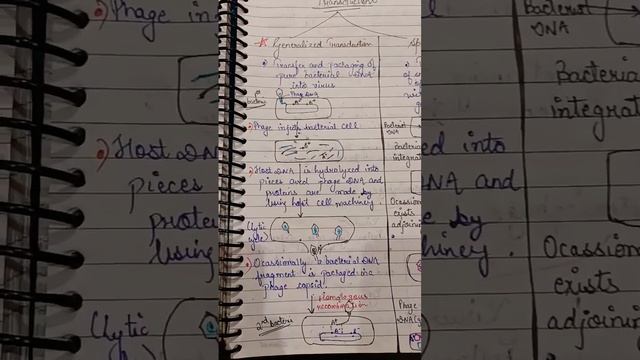 Transduction
Generalized Transduction
Transfer and packaging of
pure bacterial DNA
into virus
Phage DNA
bacteria
A+
Phage infects bacterial cell.
Host DNA is hydrolyzed into
pieces and phage DNA and
proteins are made by
using host cell machinery.
Lytic
cycle
Ocassionally a bacterial DNA
fragment is packaged in a
phage capsid.
Homologous
recombination
2nd bacteria
A+
A-
Bacterial
DNA
Bacteria
integrat
Ocassion
exists
adjoinin
Phage
DNA
Phage in
Host DNA
pieces
protein
using
Lytic
into
NA and
e by
hinery.
Bacterial
DNA
Bacteria
integrat
Ocassion
exists
adjoinin